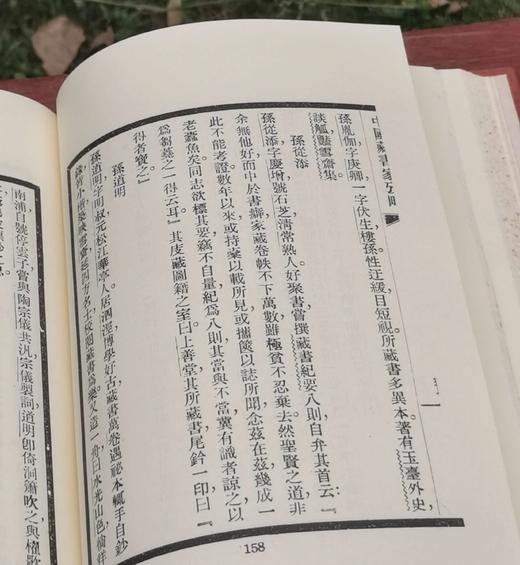 中國藏書家考略
孫胤伽字庚卿,一字伏生,樓孫性迂緩目短視所藏書多異本著有玉臺外史,
談觚豔雪齋集。
孫從添
孫從添字慶增號石芝淸常熟人好聚書嘗撰藏書紀要八則自弁其首云:『
余無他好而中於書癖家藏卷帙不下萬數雖極貧不忍棄去然聖賢之道非
此不能考證數年以來或持槖以載所見或攜篋以誌所聞念茲在茲幾成一
老蠹魚矣同志欲標其要竊不自量紀爲八則其當與不當冀有識者諒之以
爲芻蕘之一得云耳』其庋藏圖籍之室曰上善堂其所藏書尾鈐一印曰『
得者寶之』
孫道明
孫道明字明叔元松江華亭人居泗涇博學好古藏書萬卷遇祕本輒手自鈔
小樓映雪齋延四方名士校閱藏書爲樂又造一舟曰水光山色徜徉
158
南浦自號停雲子嘗與陶宗儀共汎宗儀製詞道明卽倚洞簫吹之與櫂歌